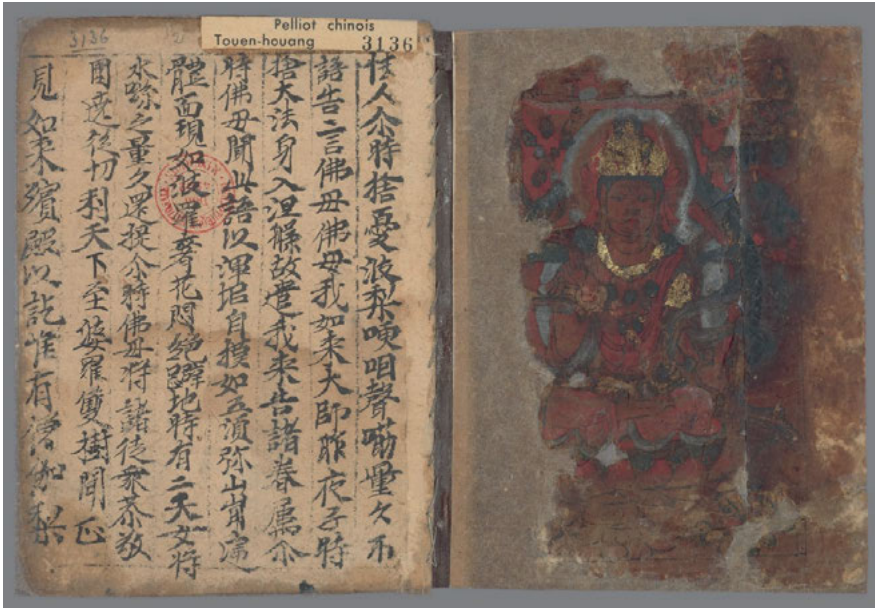 Pelliot chinois
Touen-houang 3136
3136
使人尒時捨憂波梨哽咽聲嘶量久不
語告二言佛母佛母我如来大師昨夜子時
捨大法身入涅槃故遣我来告諸眷屬尒
時佛母聞此語以渾塠自摸如五須弥山
體面現如波羅奢花悶絕躃地時有二天女將
水之量久還提尒時佛母將諸徒衆恭敬
圍遶從切利天下至娑羅雙樹間正
見如来殯殮以訖唯有僧伽梨